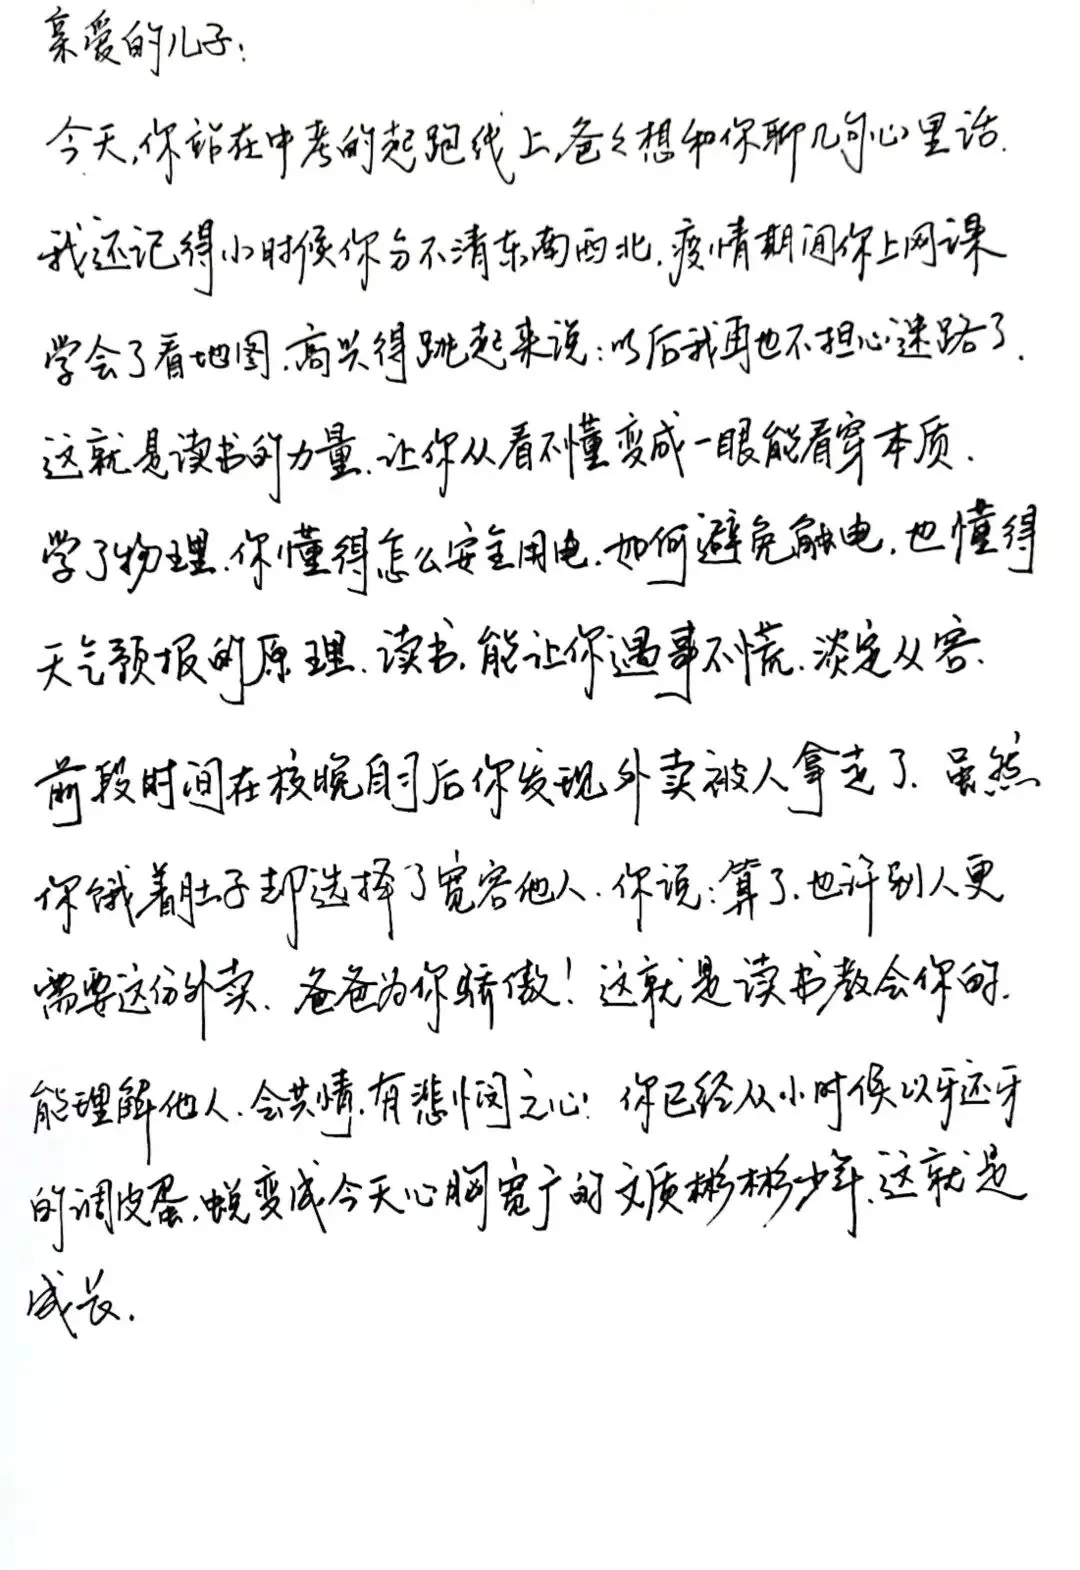 亲爱的儿子:
今天,你站在中考的起跑线上,爸々想和你聊几句心里话.
我还记得小时候你分不清东南西北.疫情期间你上网课
学会了看地图.高兴得跳起来说:以后我再也不担心迷路了.
这就是读书的力量.让你从看不懂变成一眼能看穿本质.
学了物理.你懂得怎么安全用电.如何避免触电.也懂得
天气预报的原理.读书.能让你遇事不慌.淡定从容.
前段时间在校晚自习后你发现外卖被人拿走了.虽然
你饿着肚子却选择了宽容他人.你说:算了.也许别人更
需要这份外卖.爸爸为你骄傲!这就是读书教会你的.
能理解他人.会共情.有悲悯之心!你已经从小时候以牙还牙
的调皮蛋.蜕变成今天心胸宽广的文质彬彬少年.这就是
成长.